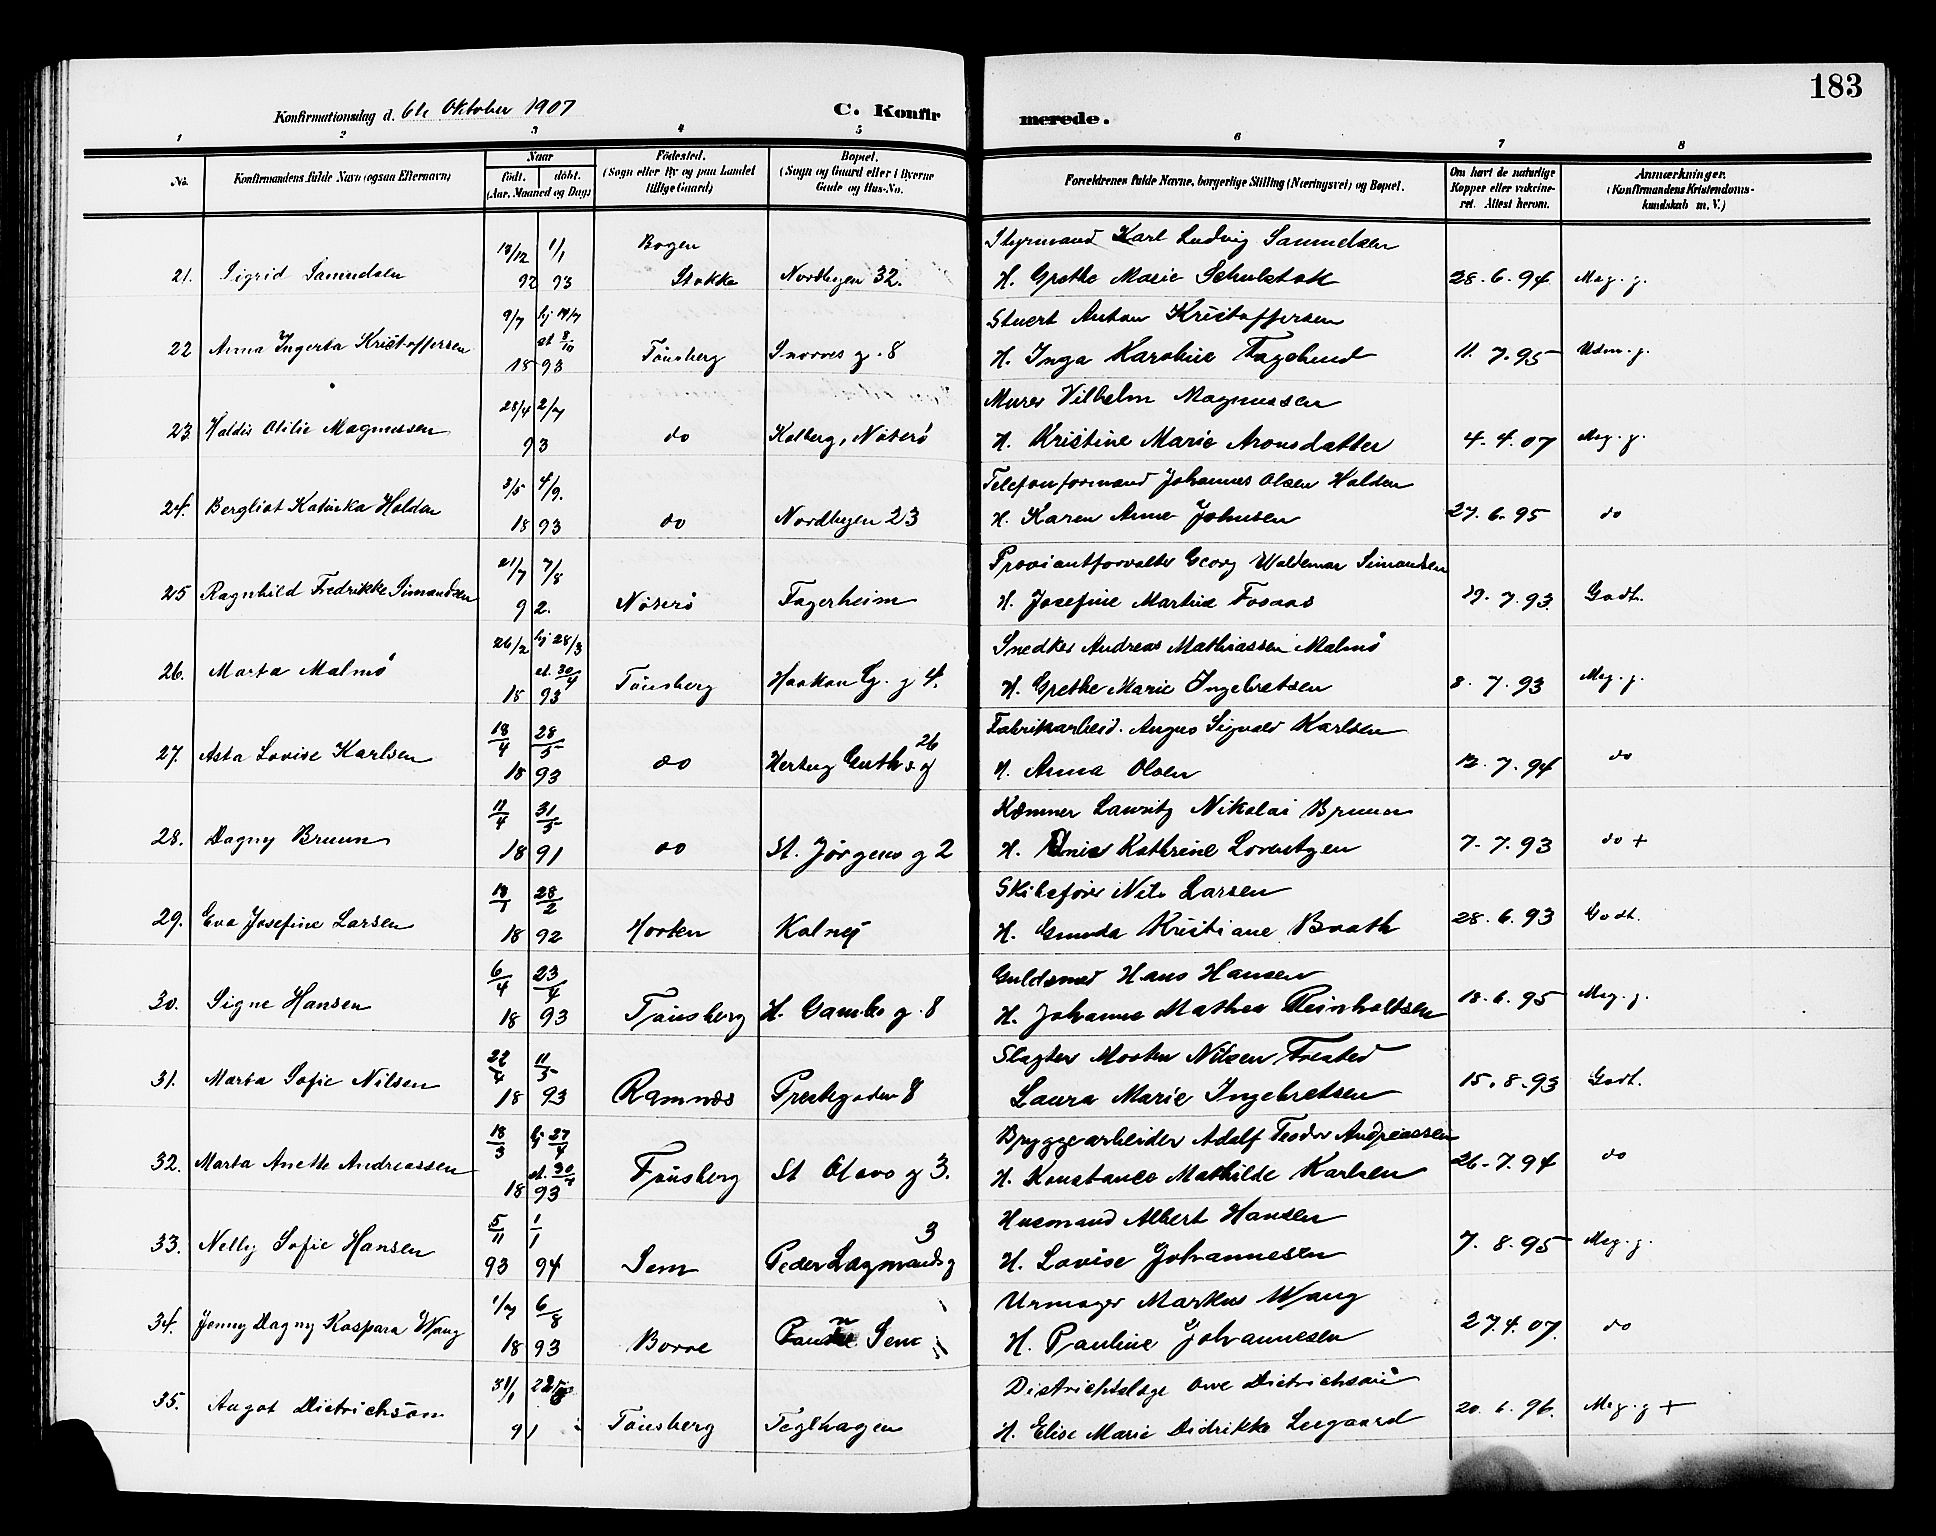 183
Konfirmationsdag d. 6te Oktober 1907 C. Konfirmerede.
1 2 3 4 5 6 7 8
No. Konfirmandens fulde Navn (ogsaa Efternavn) Naar født. døbt. (Aar, Maaned og Dag) Fødested. (Sogn eller By og paa Landet tillige Gaard) Bopæl. (Sogn og Gaard eller i Byerne Gade og Hus-No. Forældrenes fulde Navne, borgerlige Stilling (Næringsvei) og Bopæl. Om havt de naturlige Kopper eller vakcineret. Attest herom. Anmærkninger. (Konfirmandens Kristendomskundskab m. V.)
18/12 1/1 Bogen Styrmand Karl Ludvig Samuelsen
21. Sigrid Samuelsen 92 93 Stokke Nordbyen 32. H. Grethe Marie Schulstok 28.6.94 Meg. g.
9/7 hj 14/7 st 8/10 Stuert Anton Kristoffersen
22 Anna Ingerta Kristoffersen 18 93 Tönsberg Snorres g. 8 H. Inga Karoline Fagelund 11.7.95 Udm. g.
28/4 2/7 Murer Vilhelm Magnussen
23. Haldis Otilie Magnussen 93 do Kolberg, Nöterö H. Kristine Marie Aronsdatter 4.4.07 Meg. g.
3/5 4/9. Telefonformand Johannes Olsen Holden
24. Bergliot Katinka Holden 18 93 do Nordbyen 23 H. Karen Anne Johnsen 27.6.95 do
21/7 7/8 Proviantforvalter Georg Waldemar Simonsen
25 Ragnhild Fredrikke Simonsen 92. Nöterö Fagerheim H. Josefine Martine Fosaas 19.7.93. Godt.
26/2 hj 28/3 st. 30/4 Snedker Andreas Mathiassen Malmö
26. Marta Malmö 18 93 Tönsberg Haakon G. g 4. H. Grethe Marie Ingebretsen 8.7.93 Meg. g.
18/4 28/5 Fabrikarbeid. August Sigvald Karlsen
27. Asta Lovise Karlsen 18 93 do Herberg Guths g 26 H. Anna Olsen 12.7.94 do
11/4 31/5 Kæmner Lauritz Nikolai Bruun
28. Dagny Bruun 18 91 do St. Jörgens g 2 H. Kathrine Lorentzen 7.7.93 do +
18/1 28/2 Skibsförer Nils Larsen
29. Eva Josefine Larsen 18 92 Horten Kalnes H. Gunda Kristiane Baath 28.6.93 Godt.
6/4 23/4 Guldsmed Hans Hansen
30. Signe Hansen 18 93 Tönsberg H. Gamles g. 8 H. Johanne Mathea Reinholtsen 18.6.95 Meg. g.
22/4 11/5 Slagter Morten Nilsen Frested
31. Marta Sofie Nilsen 18 93 Ramnæs Prestegaden 8 Laura Marie Ingebretsen 15.8.93 Godt.
18/3 hj 27/4 st. 30/4 Bryggearbeider Adolf Teodor Andreassen
32. Marta Anette Andreassen 18 93 Tönsberg St Olavs g 3. H. Konstance Mathilde Karlsen 26.7.94 do
5/11 1/1 Husmand Albert Hansen
33. Nelly Sofie Hansen 93 94 Sem Peder Lagmands g 3 H. Lovise Johannesen 7.8.95 Meg. g.
1/7 6/8 Urmager Markus Wang
34. Jenny Dagny Kaspara Wang 18 93 Borre Sem H. Pauline Johannesen 27.4.07. do
31/1 Distriktslæge Owe Dietrichson
35. Aagot Dietrichson 91 Tönsberg Teglhagen H. Elise Marie Didrikke Leegaard 20.6.96. Meg. g +